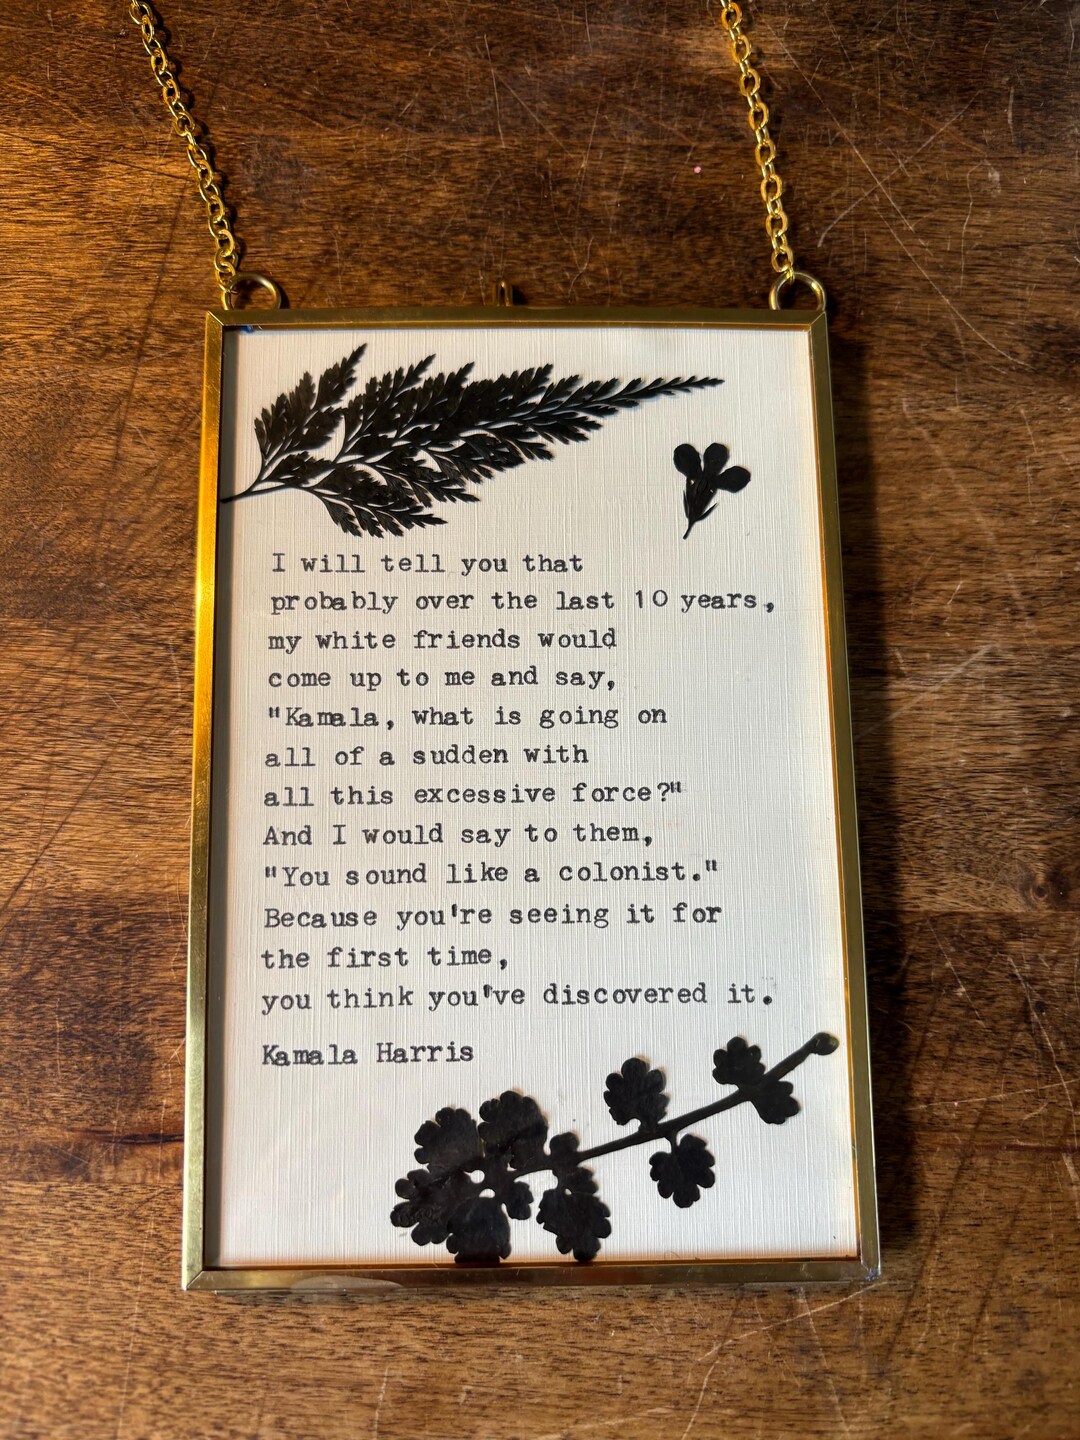 I will tell you that
probably over the last 10 years,
my white friends would
come up to me and say,
"Kamala, what is going on
all of a sudden with
all this excessive force?"
And I would say to them,
"You sound like a colonist."
Because you're seeing it for
the first time,
you think you've discovered it.
Kamala Harris